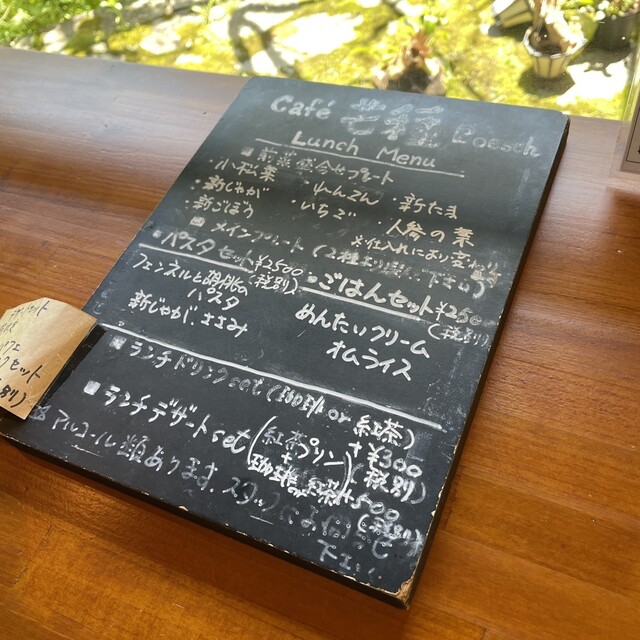 Café Boesch
Lunch Menu
■ 前菜盛合せプレート
・小松菜 ・れんこん ・新たま
・新じゃが ・いちご ・人参の葉
・新ごぼう ※仕入れにより
■ メインプレート (2種より
・パスタセット¥2500 (税別)
フェンネルと
パスタ
新じゃが、ささみ
・ごはんセット¥2500 (税別)
めんたいクリーム
オムライス
■ ランチドリンクset (珈琲 or 紅茶) +¥300 (税別)
■ ランチデザートset (紅茶プリン + 珈琲or紅茶) +500 (税別)
※ アルコール類あります。スタッフに
下さい
セット